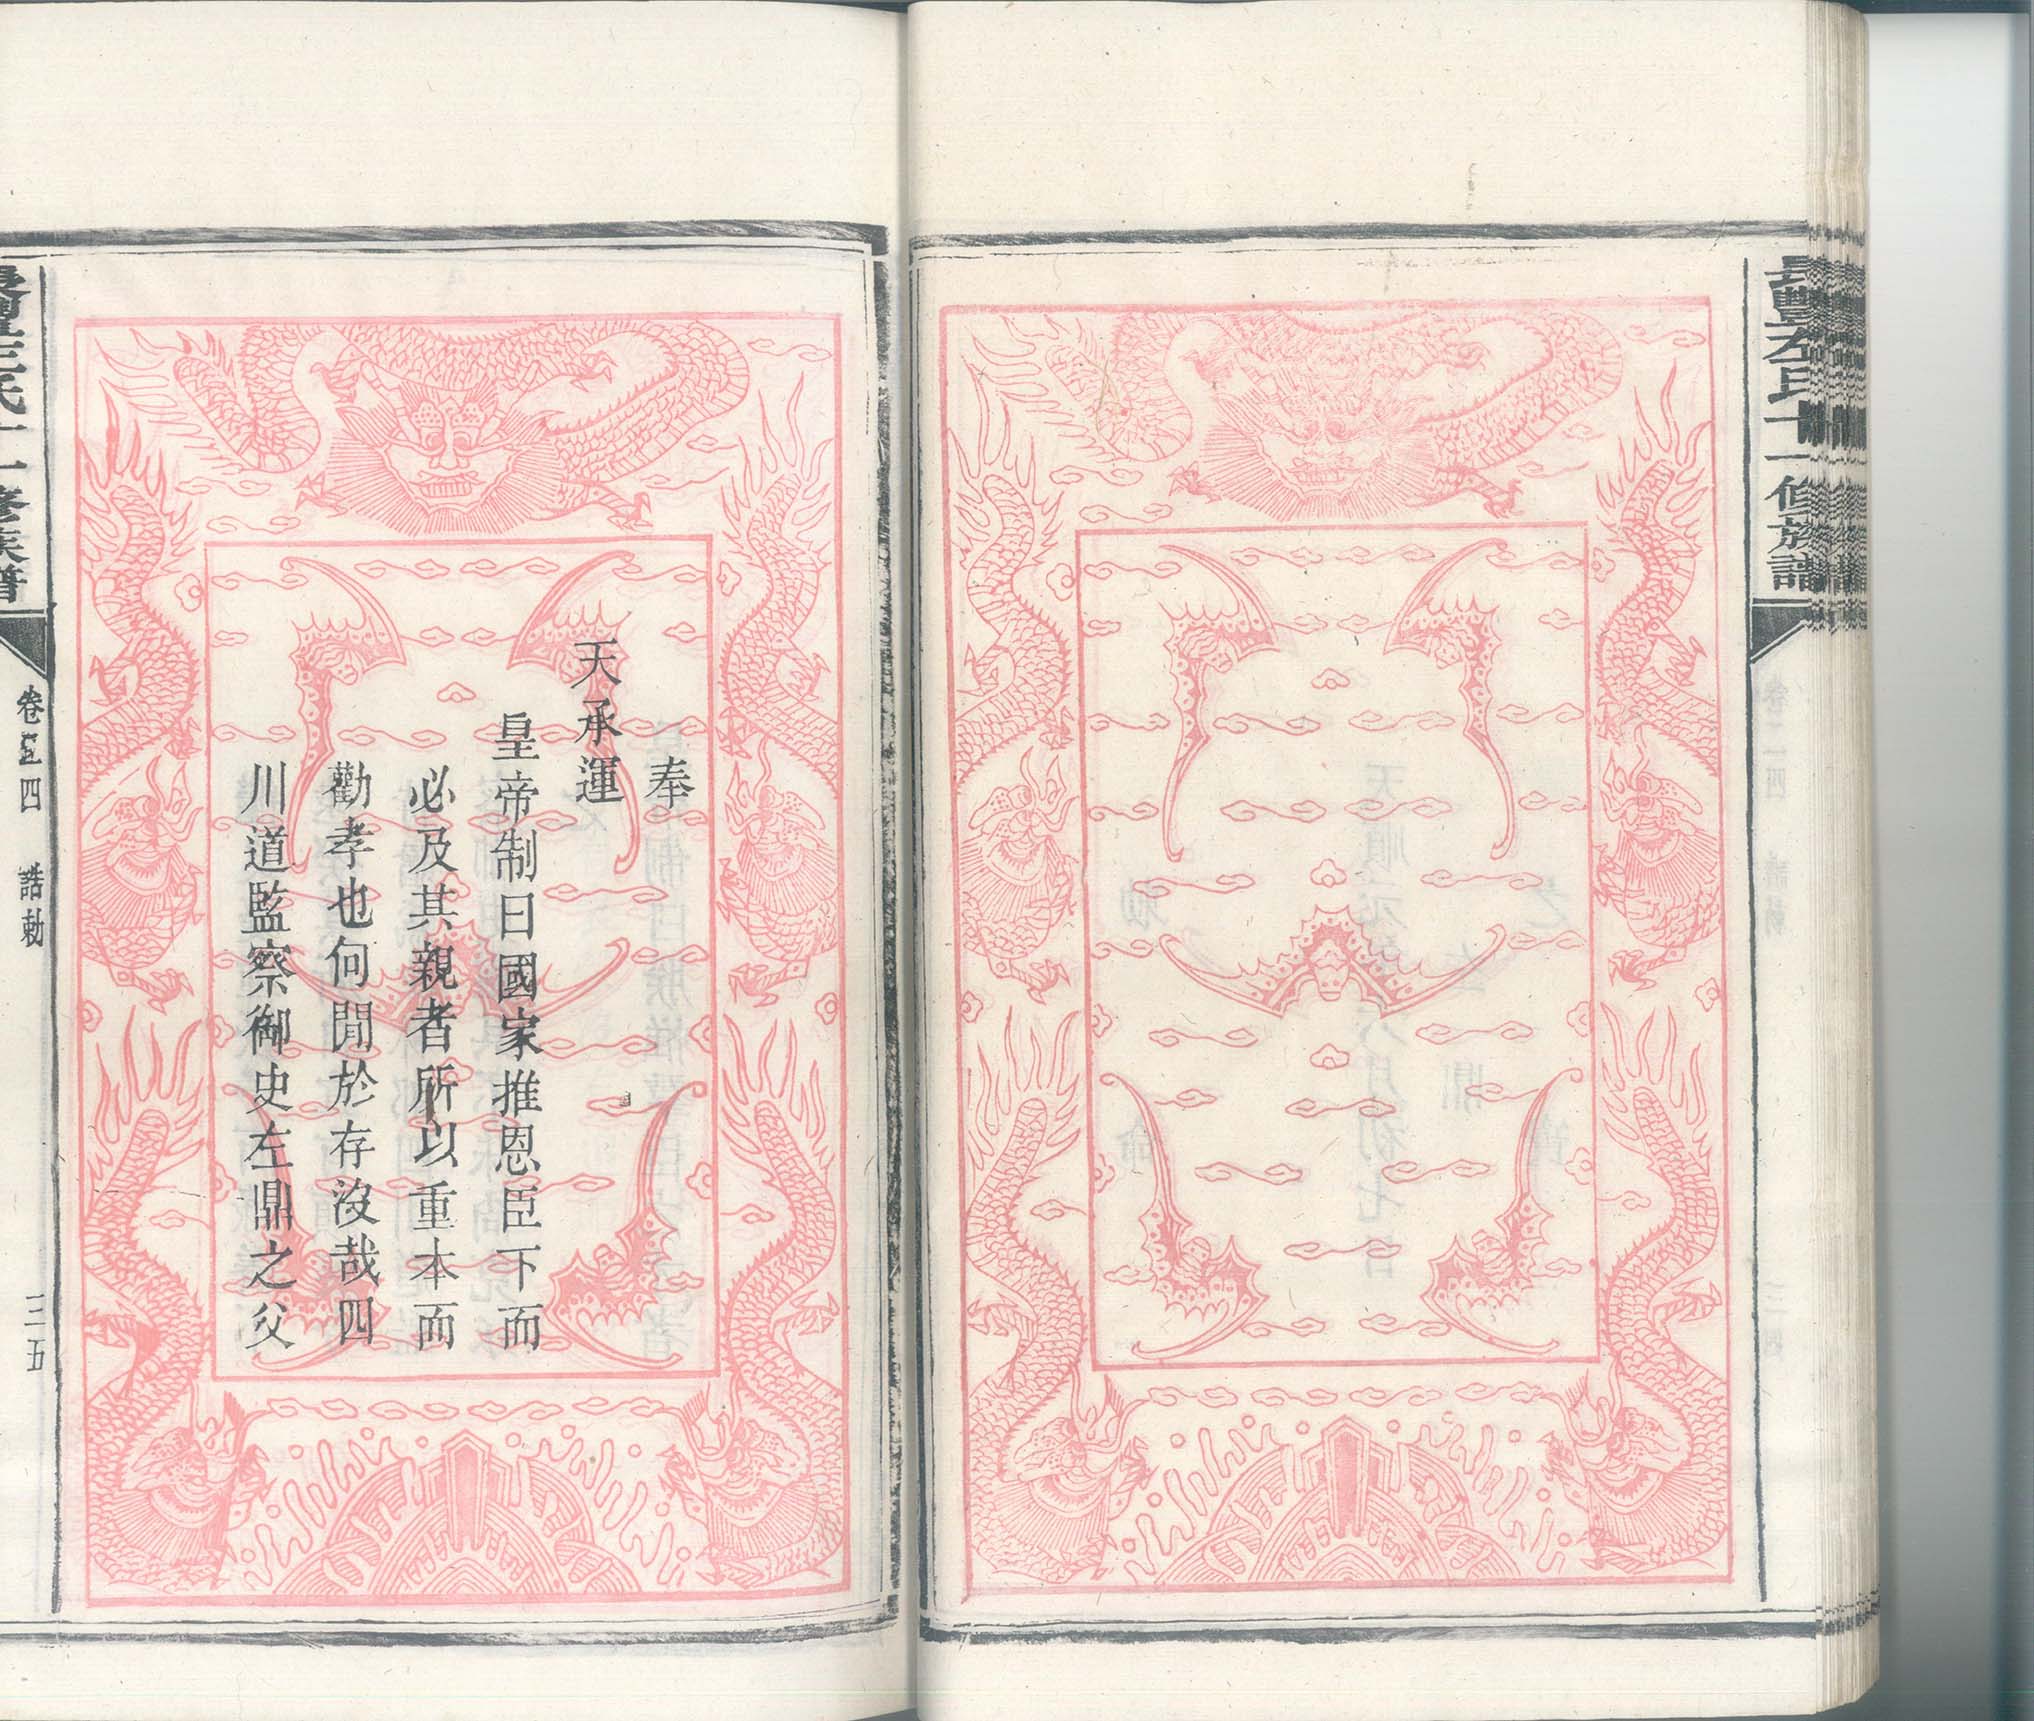 長豐左氏十一修族譜
奉
天承運
皇帝制曰國家推恩臣下而
必及其親者所以重本而
勸孝也何間於存沒哉四
川道監察御史左鼎之父
長豐左氏十一修族譜
卷三四 誥勅
三五